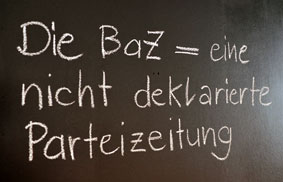 Die BaZ = eine
nicht deklarierte
Parteizeitung